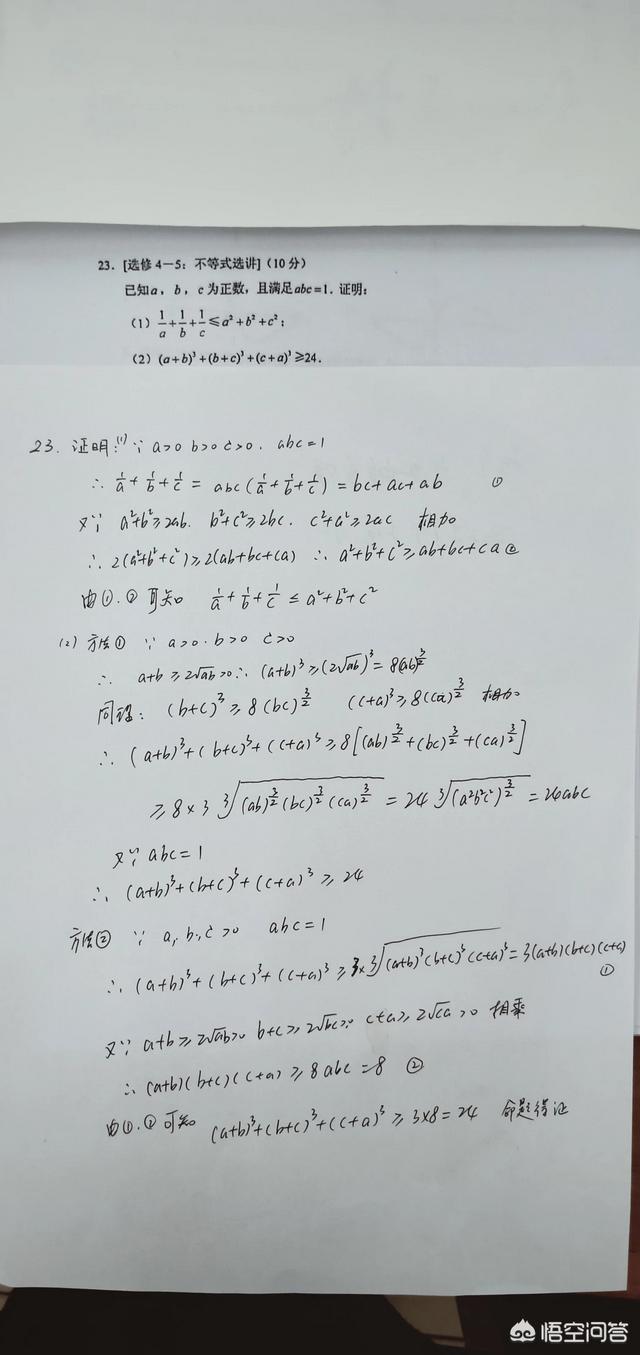 23. [选修 4—5：不等式选讲]（10 分）
已知a，b，c 为正数，且满足abc=1．证明：
（1）1/a+1/b+1/c≤a²+b²+c²；
（2）(a+b)³+(b+c)³+(c+a)³≥24．
23. 证明：(1) ∵ a>0 b>0 c>0. abc=1
∴ 1/a+1/b+1/c = abc(1/a+1/b+1/c) = bc+ac+ab ①
又∵ a²+b²≥2ab. b²+c²≥2bc. c²+a²≥2ac 相加
∴ 2(a²+b²+c²)≥2(ab+bc+ca) ∴ a²+b²+c²≥ab+bc+ca ②
由①.②可知 1/a+1/b+1/c ≤ a²+b²+c²
(2) 方法① ∵ a>0. b>0 c>0
∴ a+b≥2√ab>0 ∴ (a+b)³≥(2√ab)³=8(ab)^(3/2)
同理： (b+c)³≥8(bc)^(3/2) (c+a)³≥8(ca)^(3/2) 相加
∴ (a+b)³+(b+c)³+(c+a)³≥8[(ab)^(3/2)+(bc)^(3/2)+(ca)^(3/2)]
≥8×3 ³√((ab)^(3/2)(bc)^(3/2)(ca)^(3/2)) = 24 ³√((a²b²c²)^(3/2)) = 24abc
又∵ abc=1
∴ (a+b)³+(b+c)³+(c+a)³≥24
方法② ∵ a,b,c>0 abc=1
∴ (a+b)³+(b+c)³+(c+a)³≥3×³√((a+b)³(b+c)³(c+a)³)=3(a+b)(b+c)(c+a)
①
又∵ a+b≥2√ab>0 b+c≥2√bc>0 c+a≥2√ca>0 相乘
∴ (a+b)(b+c)(c+a)≥8abc=8 ②
由①.②可知 (a+b)³+(b+c)³+(c+a)³≥3×8=24 命题得证
悟空问答